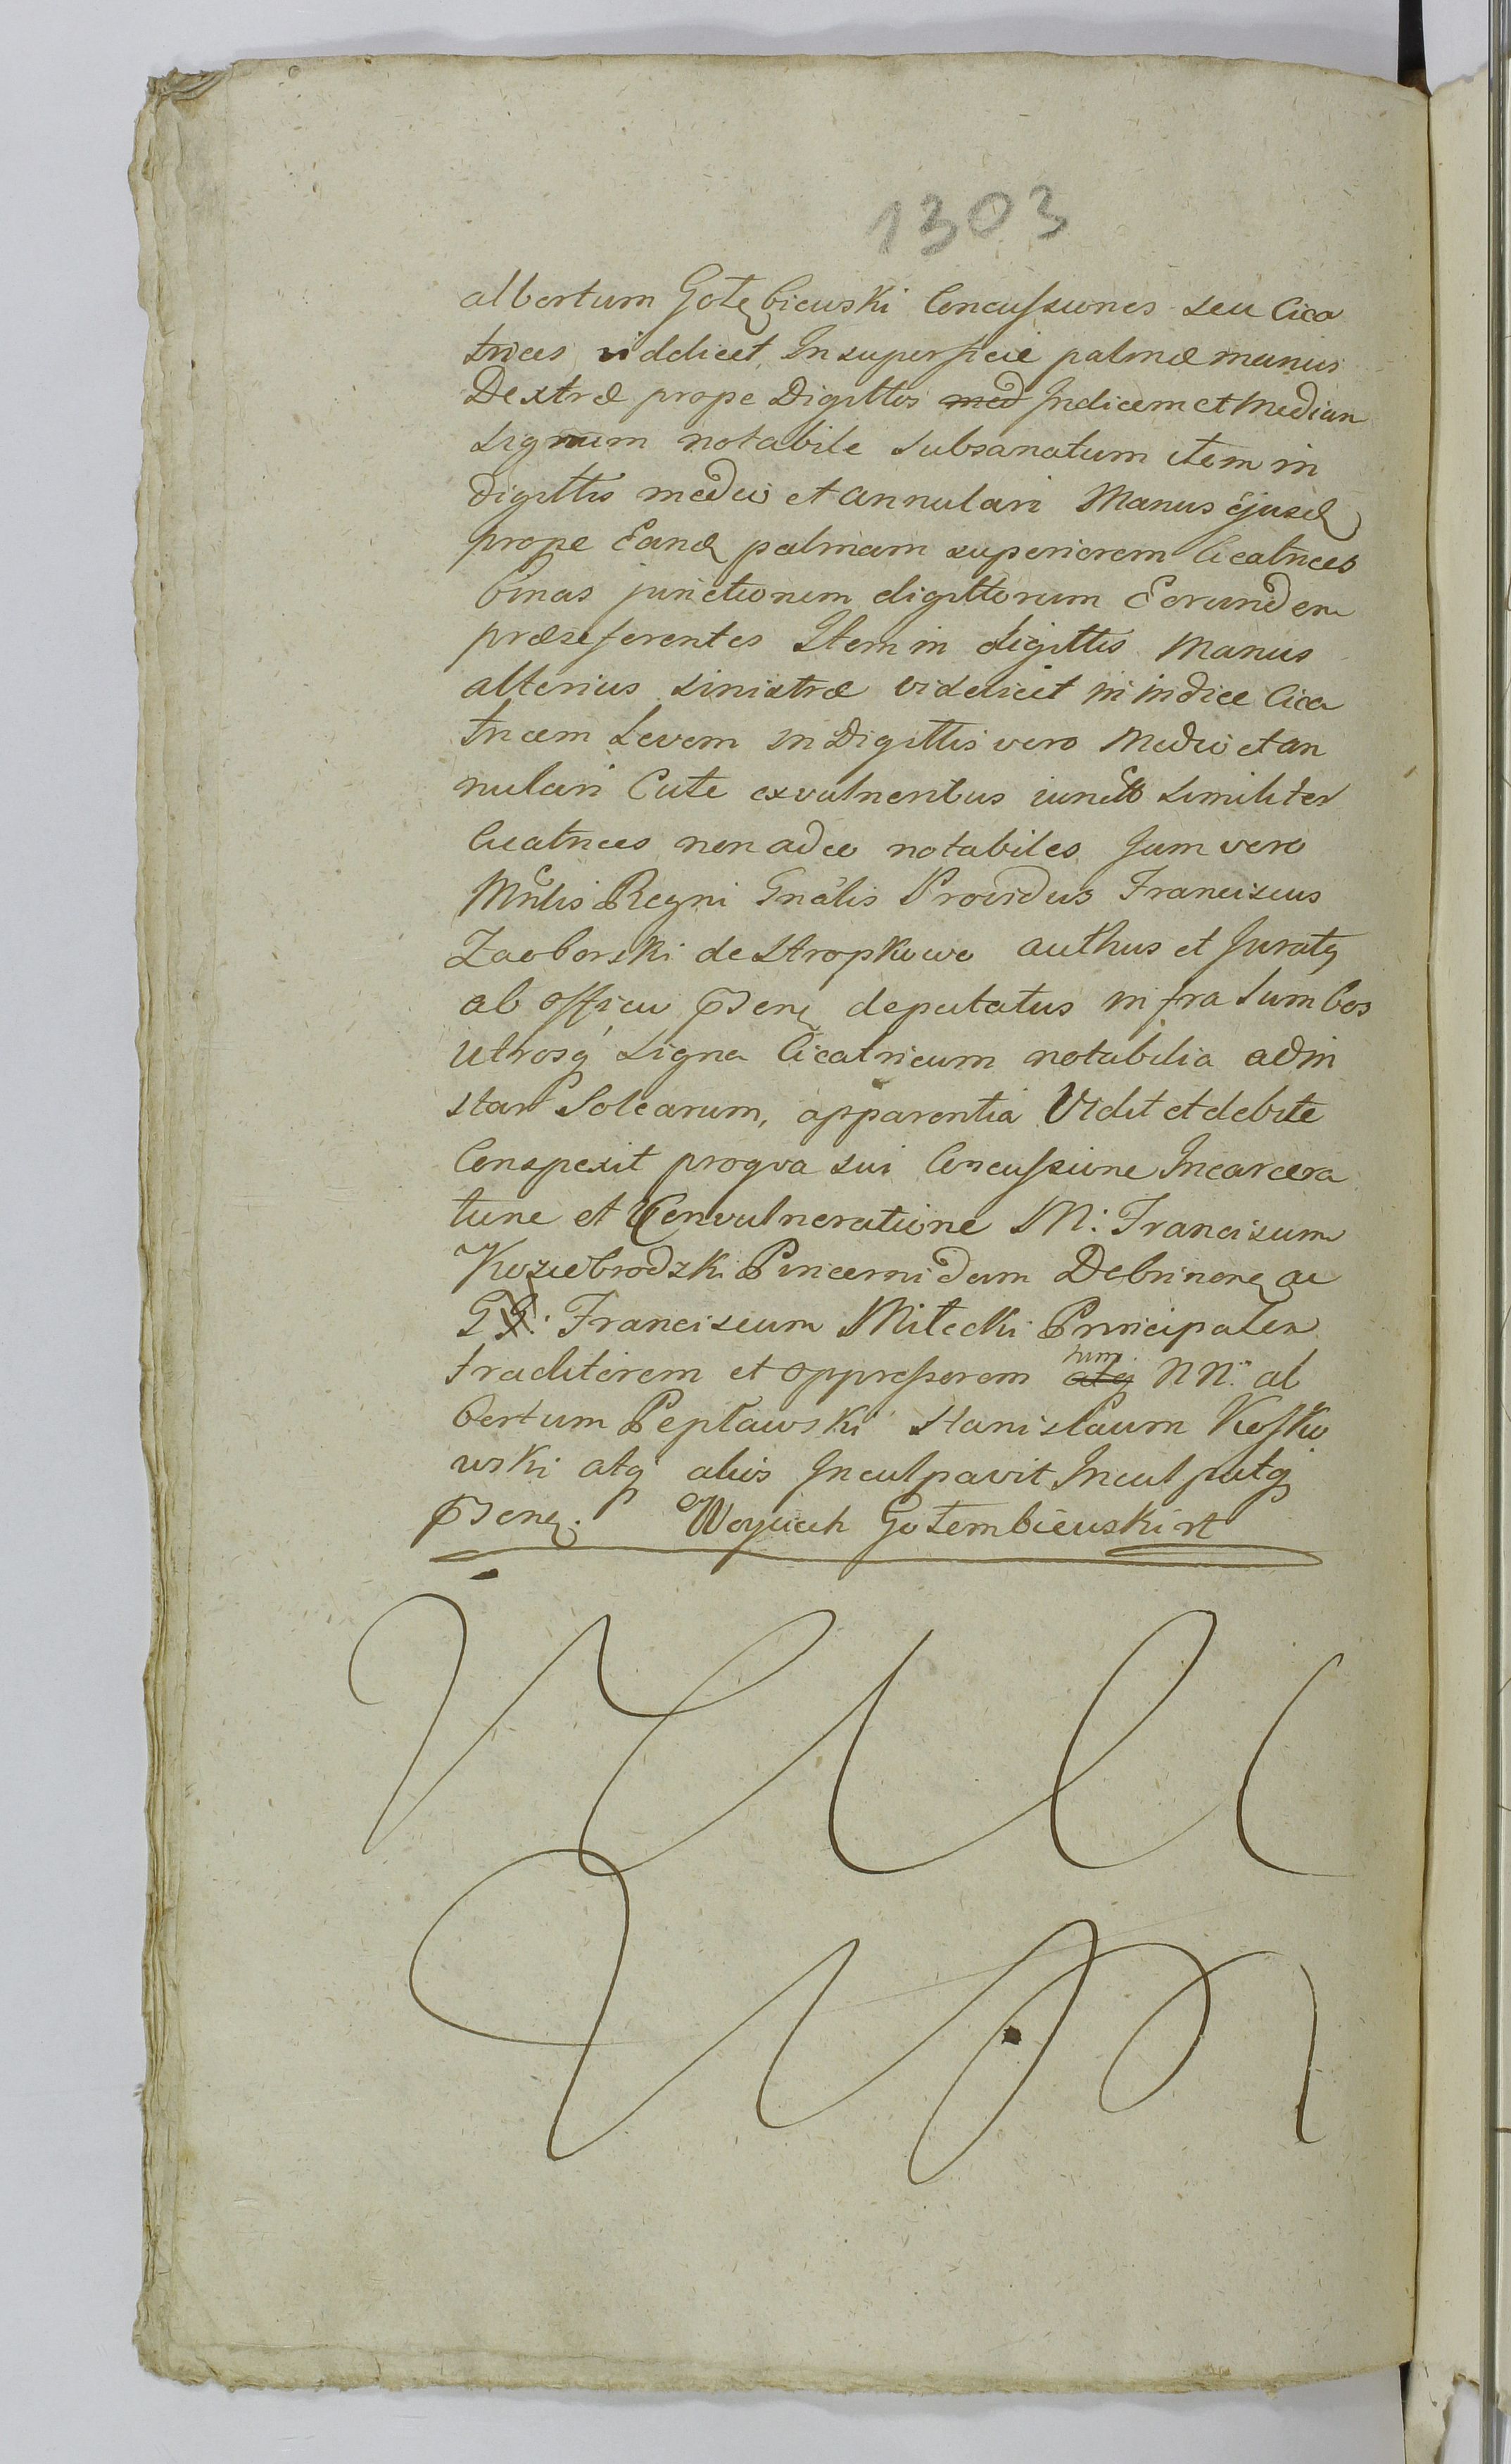 1303
albertum Gołębiewski Concussiones seu Cica
trices videlicet, In superficie palmæ manus
Dextræ prope Digittos med Indicem et Median
Signum notabile Subsanatum item in
digittis medio et annulari Manus ejusd
prope Eand palmam superiorem Cicatrices
binas junctionem digittorum Eorundem
præseferentes Item in digittis Manus
alterius sinistræ videlicet in indice Cica
tricem Levem in Digittis vero Medio et an
nulari Cute ex vulneribus similiter
Cicatrices non adeo notabiles Jam vero
Mnlis Regni Gnalis Providus Franciscus
Zaoborski de Stropkowo authus et Juratq
ab officio psenę deputatus infra Lumbos
utrosq Signa Cicatricum notabilia ad in
star Solearum, apparentia Vidit et debite
Conspexit pro qva sui Concussione Incarcera
tione et Convulneratione M: Franciscum
Koziebrodzki Pincernidam Debrinenę ac
GG: Franciscum Miłecki Principalem
traditorem et oppressorem atq tum NN: al
bertum Pepławski Stanisłaum Kossko
wski atq aliis Inculpavit Inculpatq
psenę. Woyciech Gołembiewski rt